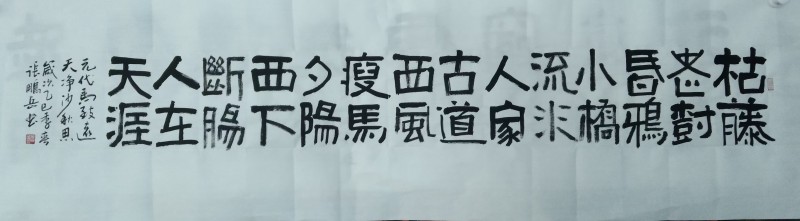 枯藤
老尌
昏鴉
小橋
流水
人家
古道
西風
瘦馬
夕陽
西下
斷腸
人在
天涯
元代馬致遠
天净沙秋思
歲次乙巳季春
張鵬岳书